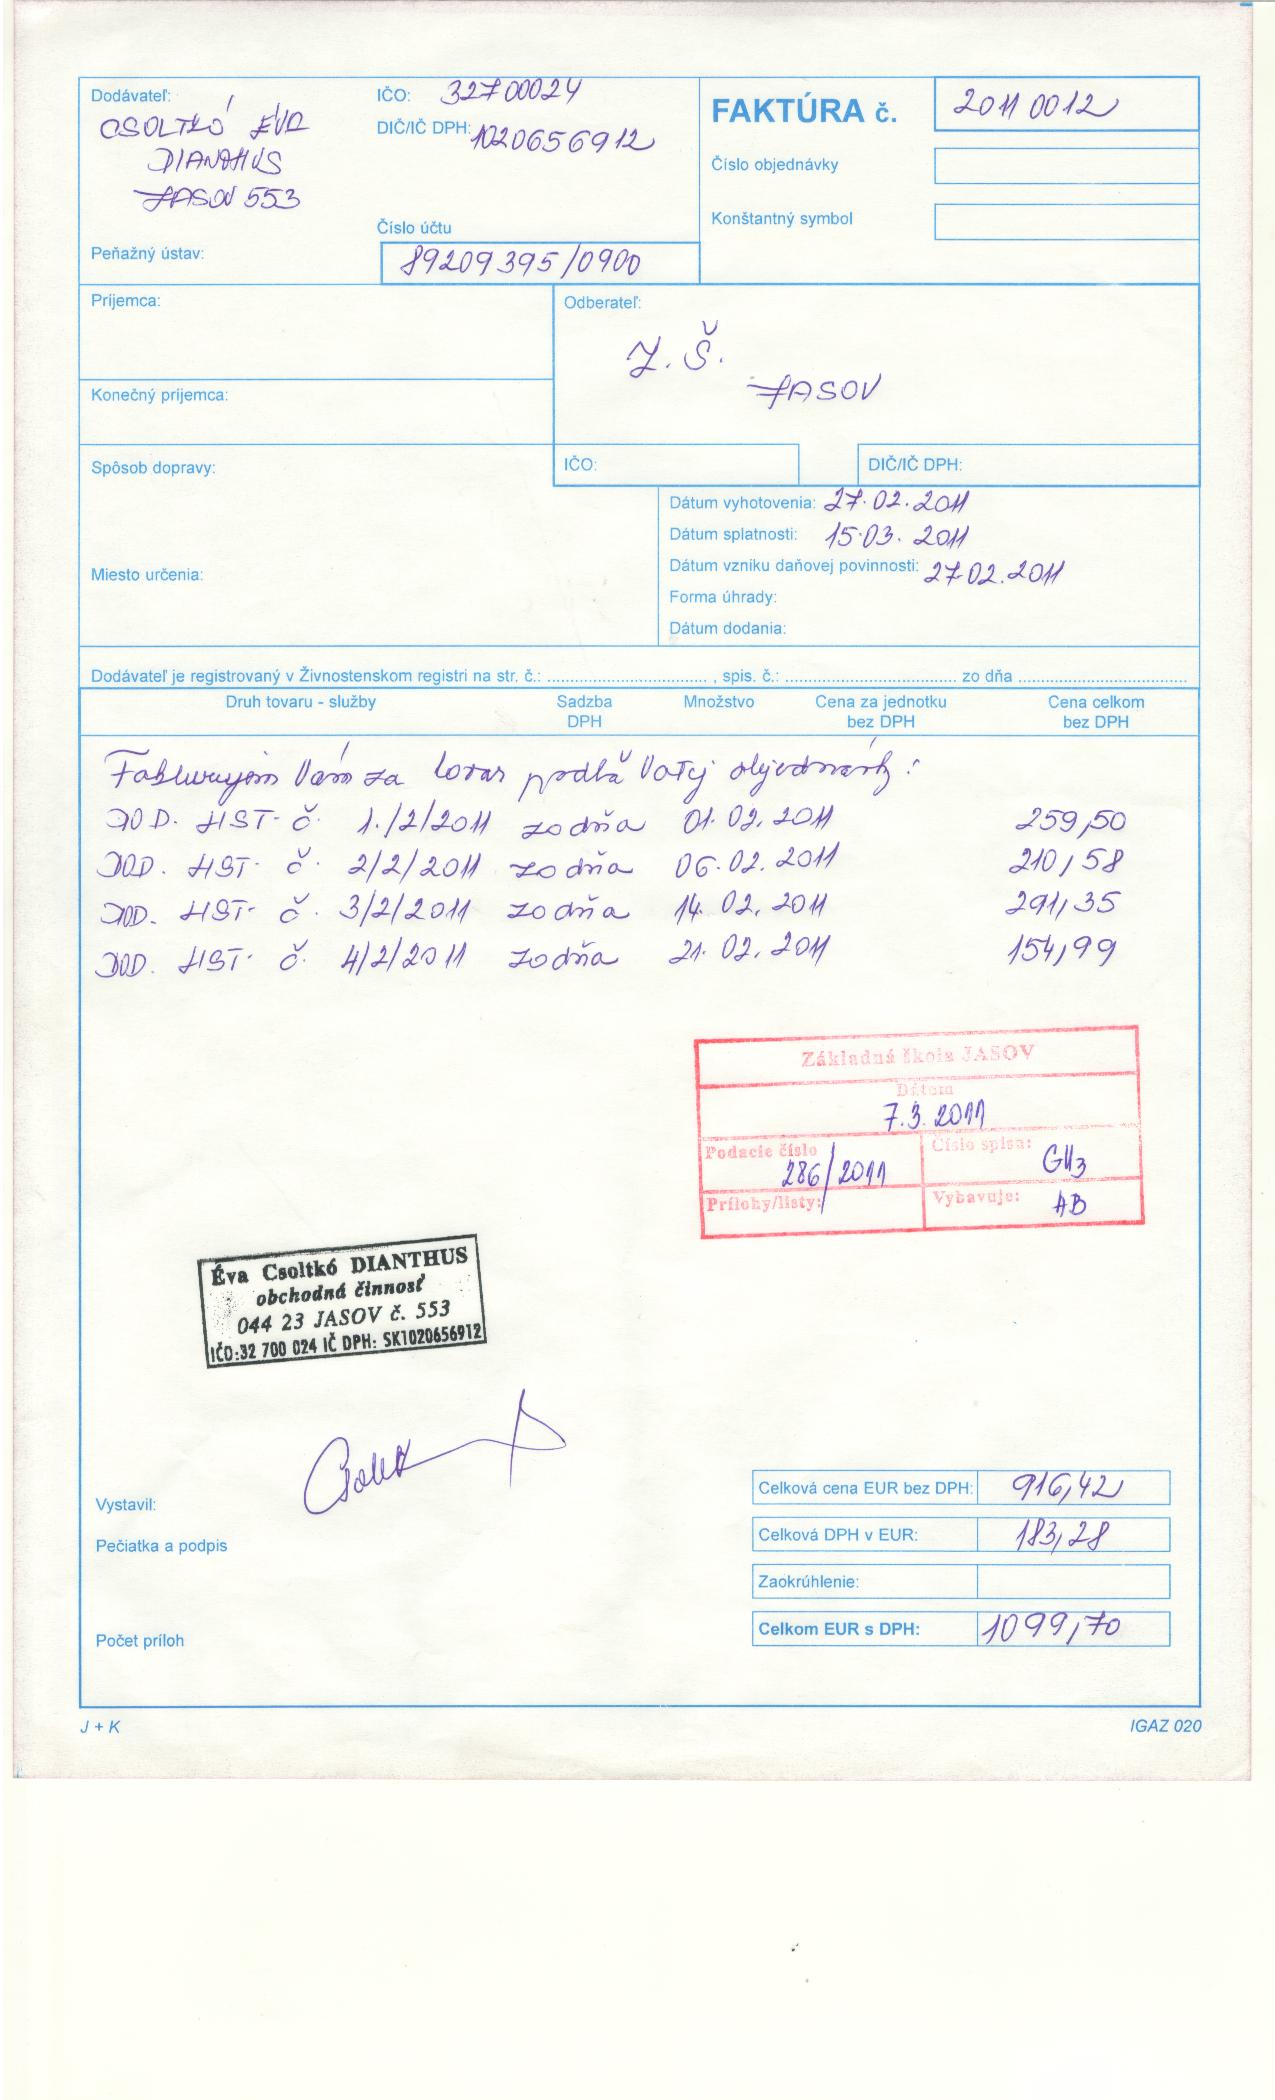 Dodávateľ:
CSOLTKÓ ÉVA
DIANTHUS
JASOV 553
IČO: 32700024
DIČ/IČ DPH: 1020656912
FAKTÚRA č. 20110012
Číslo objednávky
Konštantný symbol
Číslo účtu
Peňažný ústav: 89209395/0900
Príjemca:
Odberateľ:
Z.Š.
JASOV
Konečný príjemca:
IČO: DIČ/IČ DPH:
Spôsob dopravy:
Dátum vyhotovenia: 27.02.2011
Dátum splatnosti: 15.03.2011
Miesto určenia:
Dátum vzniku daňovej povinnosti: 27.02.2011
Forma úhrady:
Dátum dodania:
Dodávateľ je registrovaný v Živnostenskom registri na str. č.: , spis. č.: zo dňa
Druh tovaru - služby Sadzba DPH Množstvo Cena za jednotku bez DPH Cena celkom bez DPH
Fakturujem Vám za tovar podľa Vašej objednávky:
DOD. LIST. č. 1./2/2011 zo dňa 01.02.2011 259,50
DOD. LIST. č. 2/2/2011 zo dňa 06.02.2011 210,58
DOD. LIST. č. 3/2/2011 zo dňa 14.02.2011 291,35
DOD. LIST. č. 4/2/2011 zo dňa 21.02.2011 154,99
Základná škola JASOV
Dátum
7.3.2011
Podacie číslo 286/2011 Číslo spisu:
Prílohy/listy: Vybavuje: AB
Éva Csoltkó DIANTHUS
obchodná činnosť
044 23 JASOV č. 553
IČO:32 700 024 IČ DPH: SK1020656912
Vystavil:
Pečiatka a podpis
Počet príloh
Celková cena EUR bez DPH: 916,42
Celková DPH v EUR: 183,28
Zaokrúhlenie:
Celkom EUR s DPH: 1099,70
J + K IGAZ 020